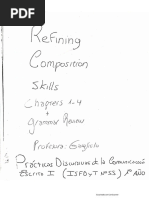 Refining
Composition
Skills
Chapters 1-4
+
Grammar Review
Profesora: Gargiulo
Prácticas Discursivas de la Comunicación
Escrita I (ISFDyT N°55) 1° AÑO